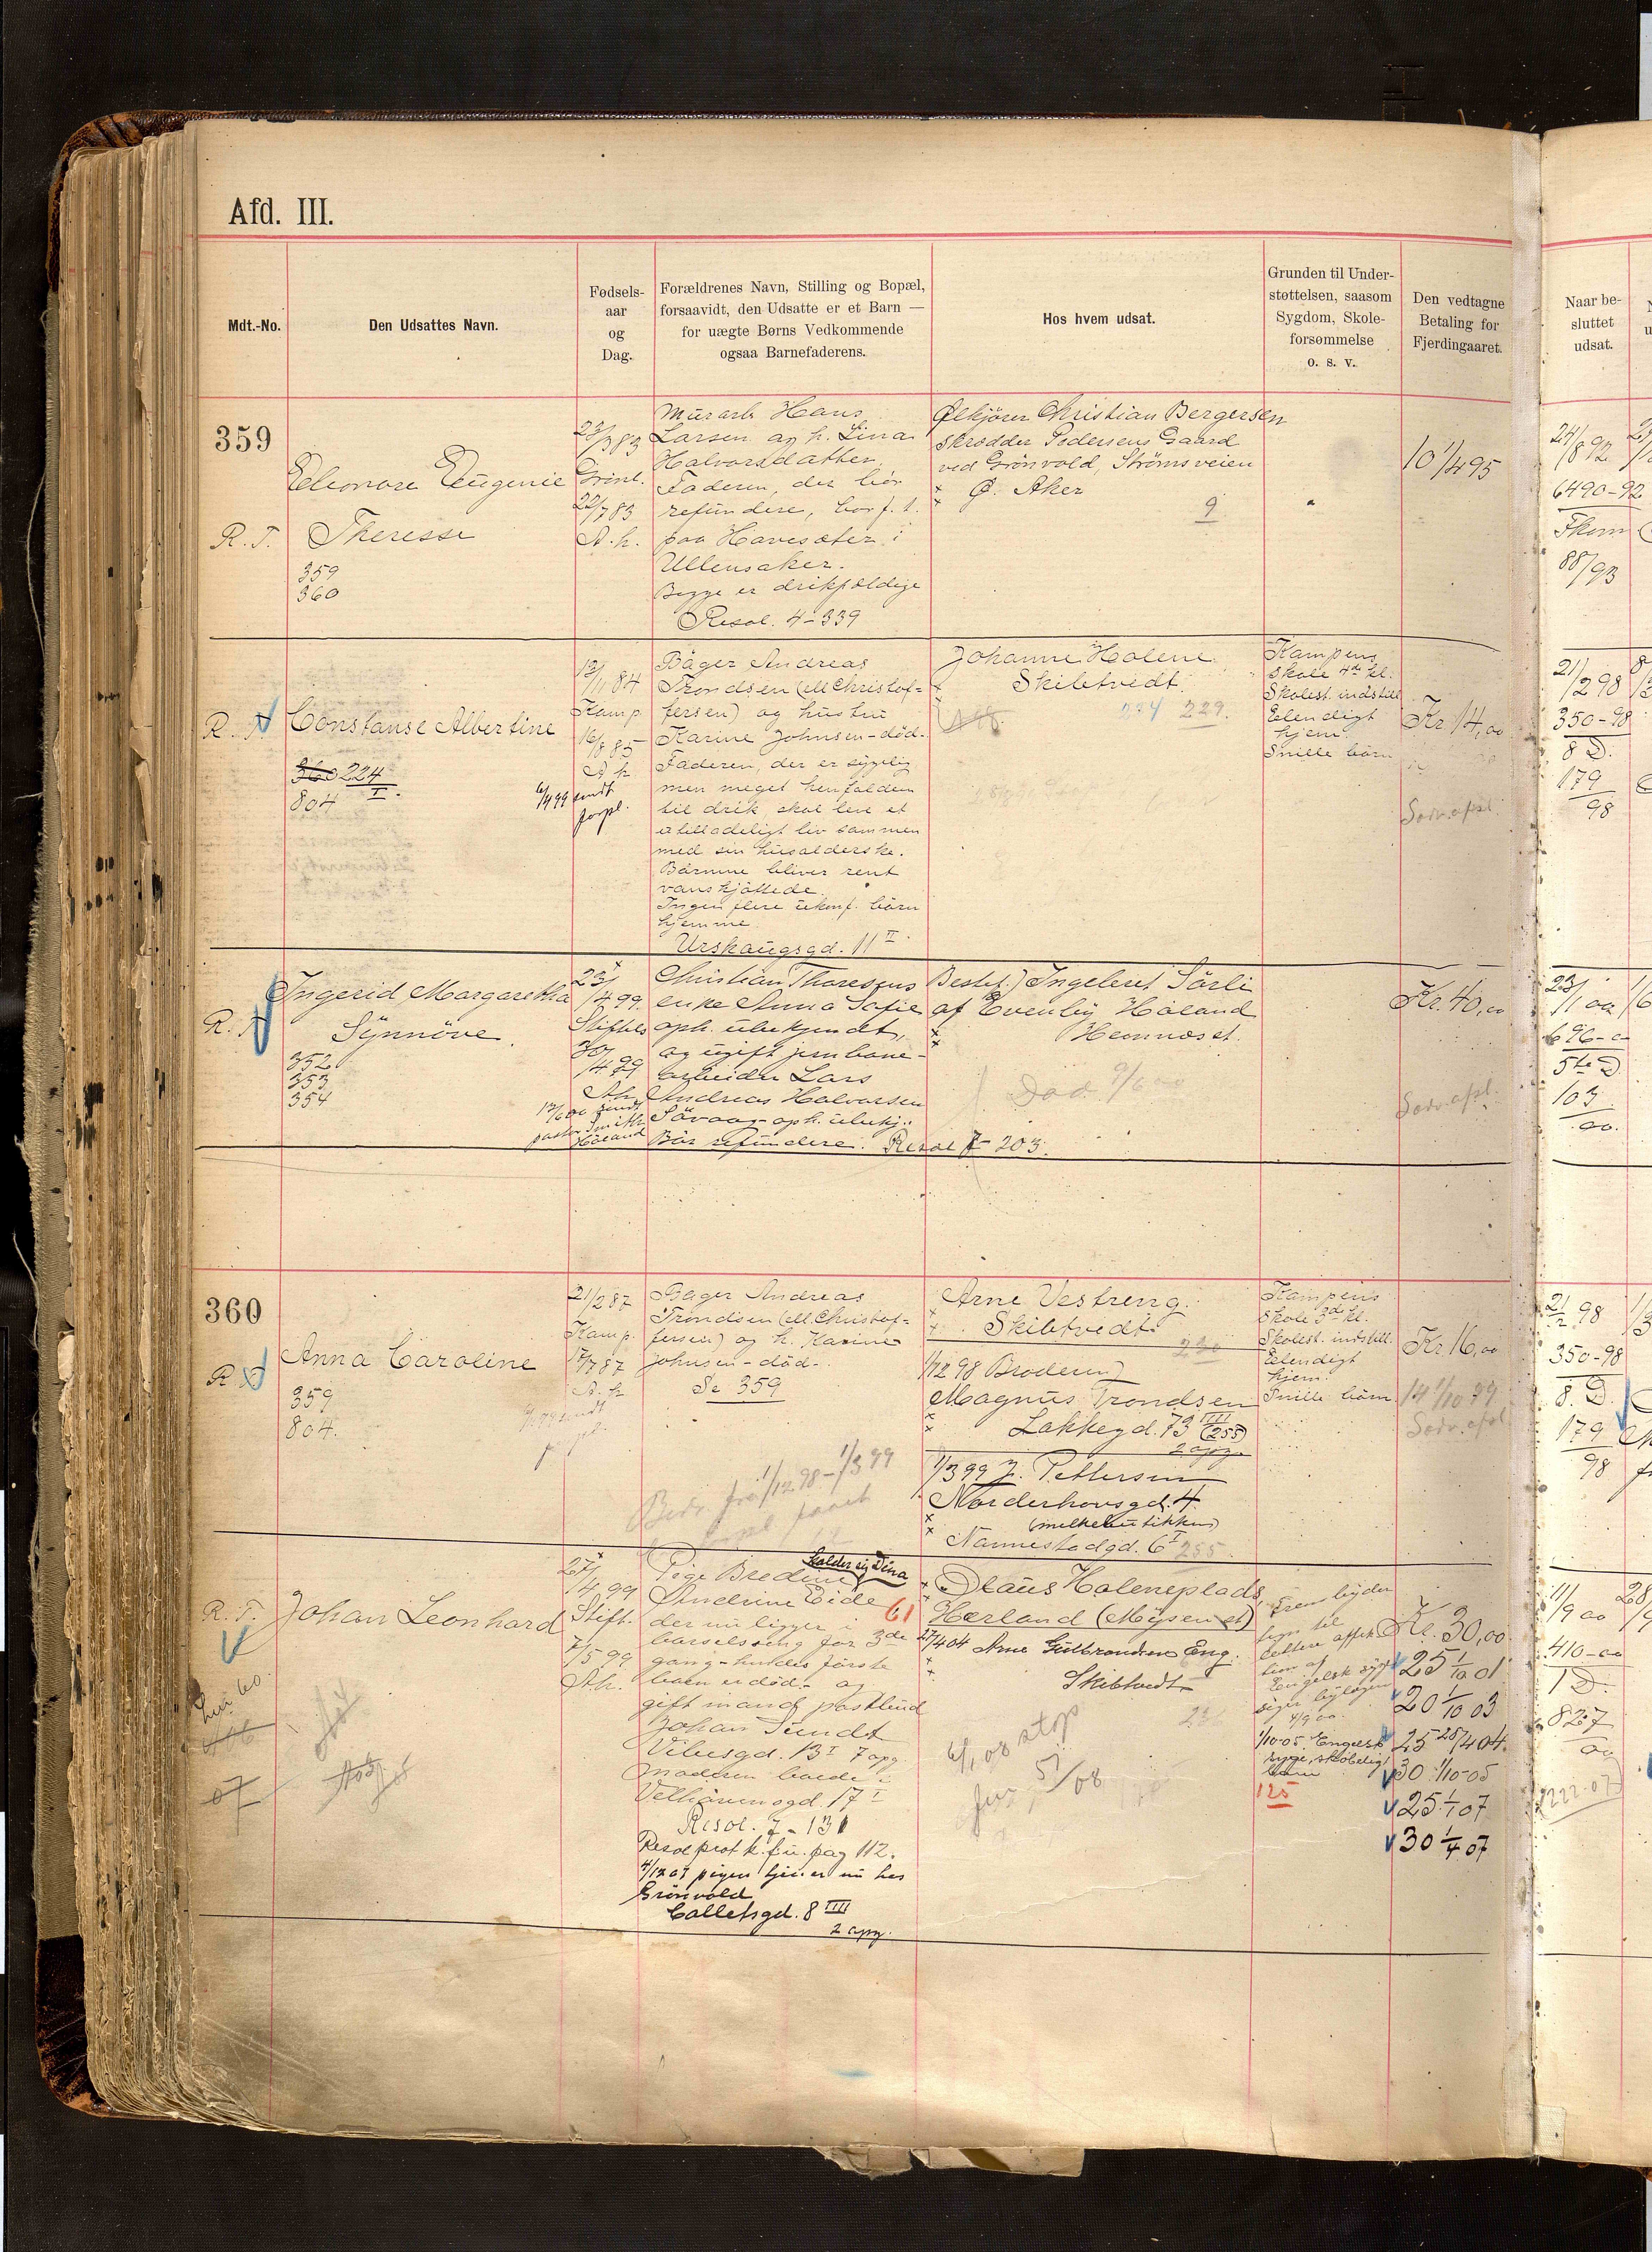 Afd. III.
Mdt.-No.
Den Udsattes Navn.
Fødsels-
aar
og
Dag.
Forældrenes Navn, Stilling og Bopæl,
forsaavidt, den Udsatte er et Barn —
for uægte Børns Vedkommende
ogsaa Barnefaderens.
Hos hvem udsat.
Grunden til Under-
støttelsen, saasom
Sygdom, Skole-
forsømmelse
o. s. v.
Den vedtagne
Betaling for
Fjerdingaaret.
Naar be-
sluttet
udsat.
359
Eleonore Eugenie
R. T. Theresse
359
360
23/3 83
Grünl.
22/7 83
A. k.
Murarb. Hans
Larsen og h. Lina
Halvorsdatter
Faderen, der bör
refundere, bor f. t.
paa Haveseter i
Ullensaker.
Begge er drikfældige
Resol. 4-339
Ølkjörer Christian Bergersen
skrædder Pedersens Gaard
ved Grönvold, Strömsveien
Ø. Aker
9
10 1/4 95
24/8 92
6490-92
Fkom
88/93
R. T. Constanse Albertine
360 224
I.
804
12/1 84
Kamp.
16/8 85
A. k
6/4 99 sendt
forpl.
Bager Andreas
Trondsen (ell Christof=
fersen) og hustru
Karine Johnsen-död-
Faderen, der er sygelig
men meget henfalden
til drik skal leve et
utilladeligt liv sammen
med sin husholderske.
Börnene bliver rent
vanskjöttede.
Ingen flere ukonf. börn
hjemme.
Urskougsgd. 11 II
Johanne Holene
Skibtvedt.
224 229.
Kampens
skole 4de kl.
Skolest. indstill
Elendigt
hjem.
Snille börn
Kr 14,00
21/2 98
350-98
8 D.
179
98
R. T. Ingerid Margaretha
Synnöve.
352
353
354
23/4 99.
Stiftels
30/4 99
A. k.
12/6 00 sendt
pastor Smith
Höland
Christian Thoresens
enke Anna Sofie
oph. ubekjendt,
og ugift jernbane-
arbeider Lars
Andreas Halvorsen
Sövaag-oph. ubekj.
Bör refundere. Resol 7-203.
Bestet.) Ingeleret Sörli
af Evenby Höland
Hemnes st.
Död 9/6 00
Kr. 40,00
23/1 00
696-00
5te D
103
00.
360
R. T. Anna Caroline
359
804.
21/2 87
Kamp.
17/7 87
A. k
Bager Andreas
Trondsen (ell. Christof=
fersen) og h. Karine
Johnsen-död-
Se 359
1/12 98 - 1/3 99
Arne Vestreng.
Skibtvedt.
1/12 98 Broderen)
Magnus Trondsen
Lakkegd. 73 IIII (255)
2 opg.
1/3 99 J. Pettersen
Norderhovsgd. 4.
(melkebutikken)
Nannestadgd. 6 I 255.
Kampens
skole 3de kl.
Skolest. indstill.
Elendigt
hjem.
Snille börn
Kr 16,00
14 1/10 99
21/2 98
350-98
8. D.
179
98
R. T. Johan Leonhard
07
27/4 99
Stift.
7/5 99
A. k.
kalder sig Dina
Pige Bredine
Andrine Eide
61
der nu ligger i
barselseng for 3de
gang-hendes förste
barn er död-og
gift mand postbud
Johan Tundt
Vibesgd. 13 I 7 opg.
Moderen boede i
Velhavensgd. 17 I
Resol. 7-131
Resol prot k. f. u. pag 112.
4/12 07 pigen tjener nu hos
Grönvold
Colletsgd. 8 IIII
2 opg.
Olaus Holeneplads,
Hærland (Mysen st)
27/4 04 Arne Gulbrandsen Eng.
Skibtvedt
6/1 08 stop
1/10-05. Engelsk
syge, skrøbelig
barn
125
Kr. 30,00
25 1/10 01
20 1/10 03
25 28/4 04.
30 1/10-05
25 1/1 07
30 1/4 07
11/9 00
410-00
1 D.
827
00
222-07